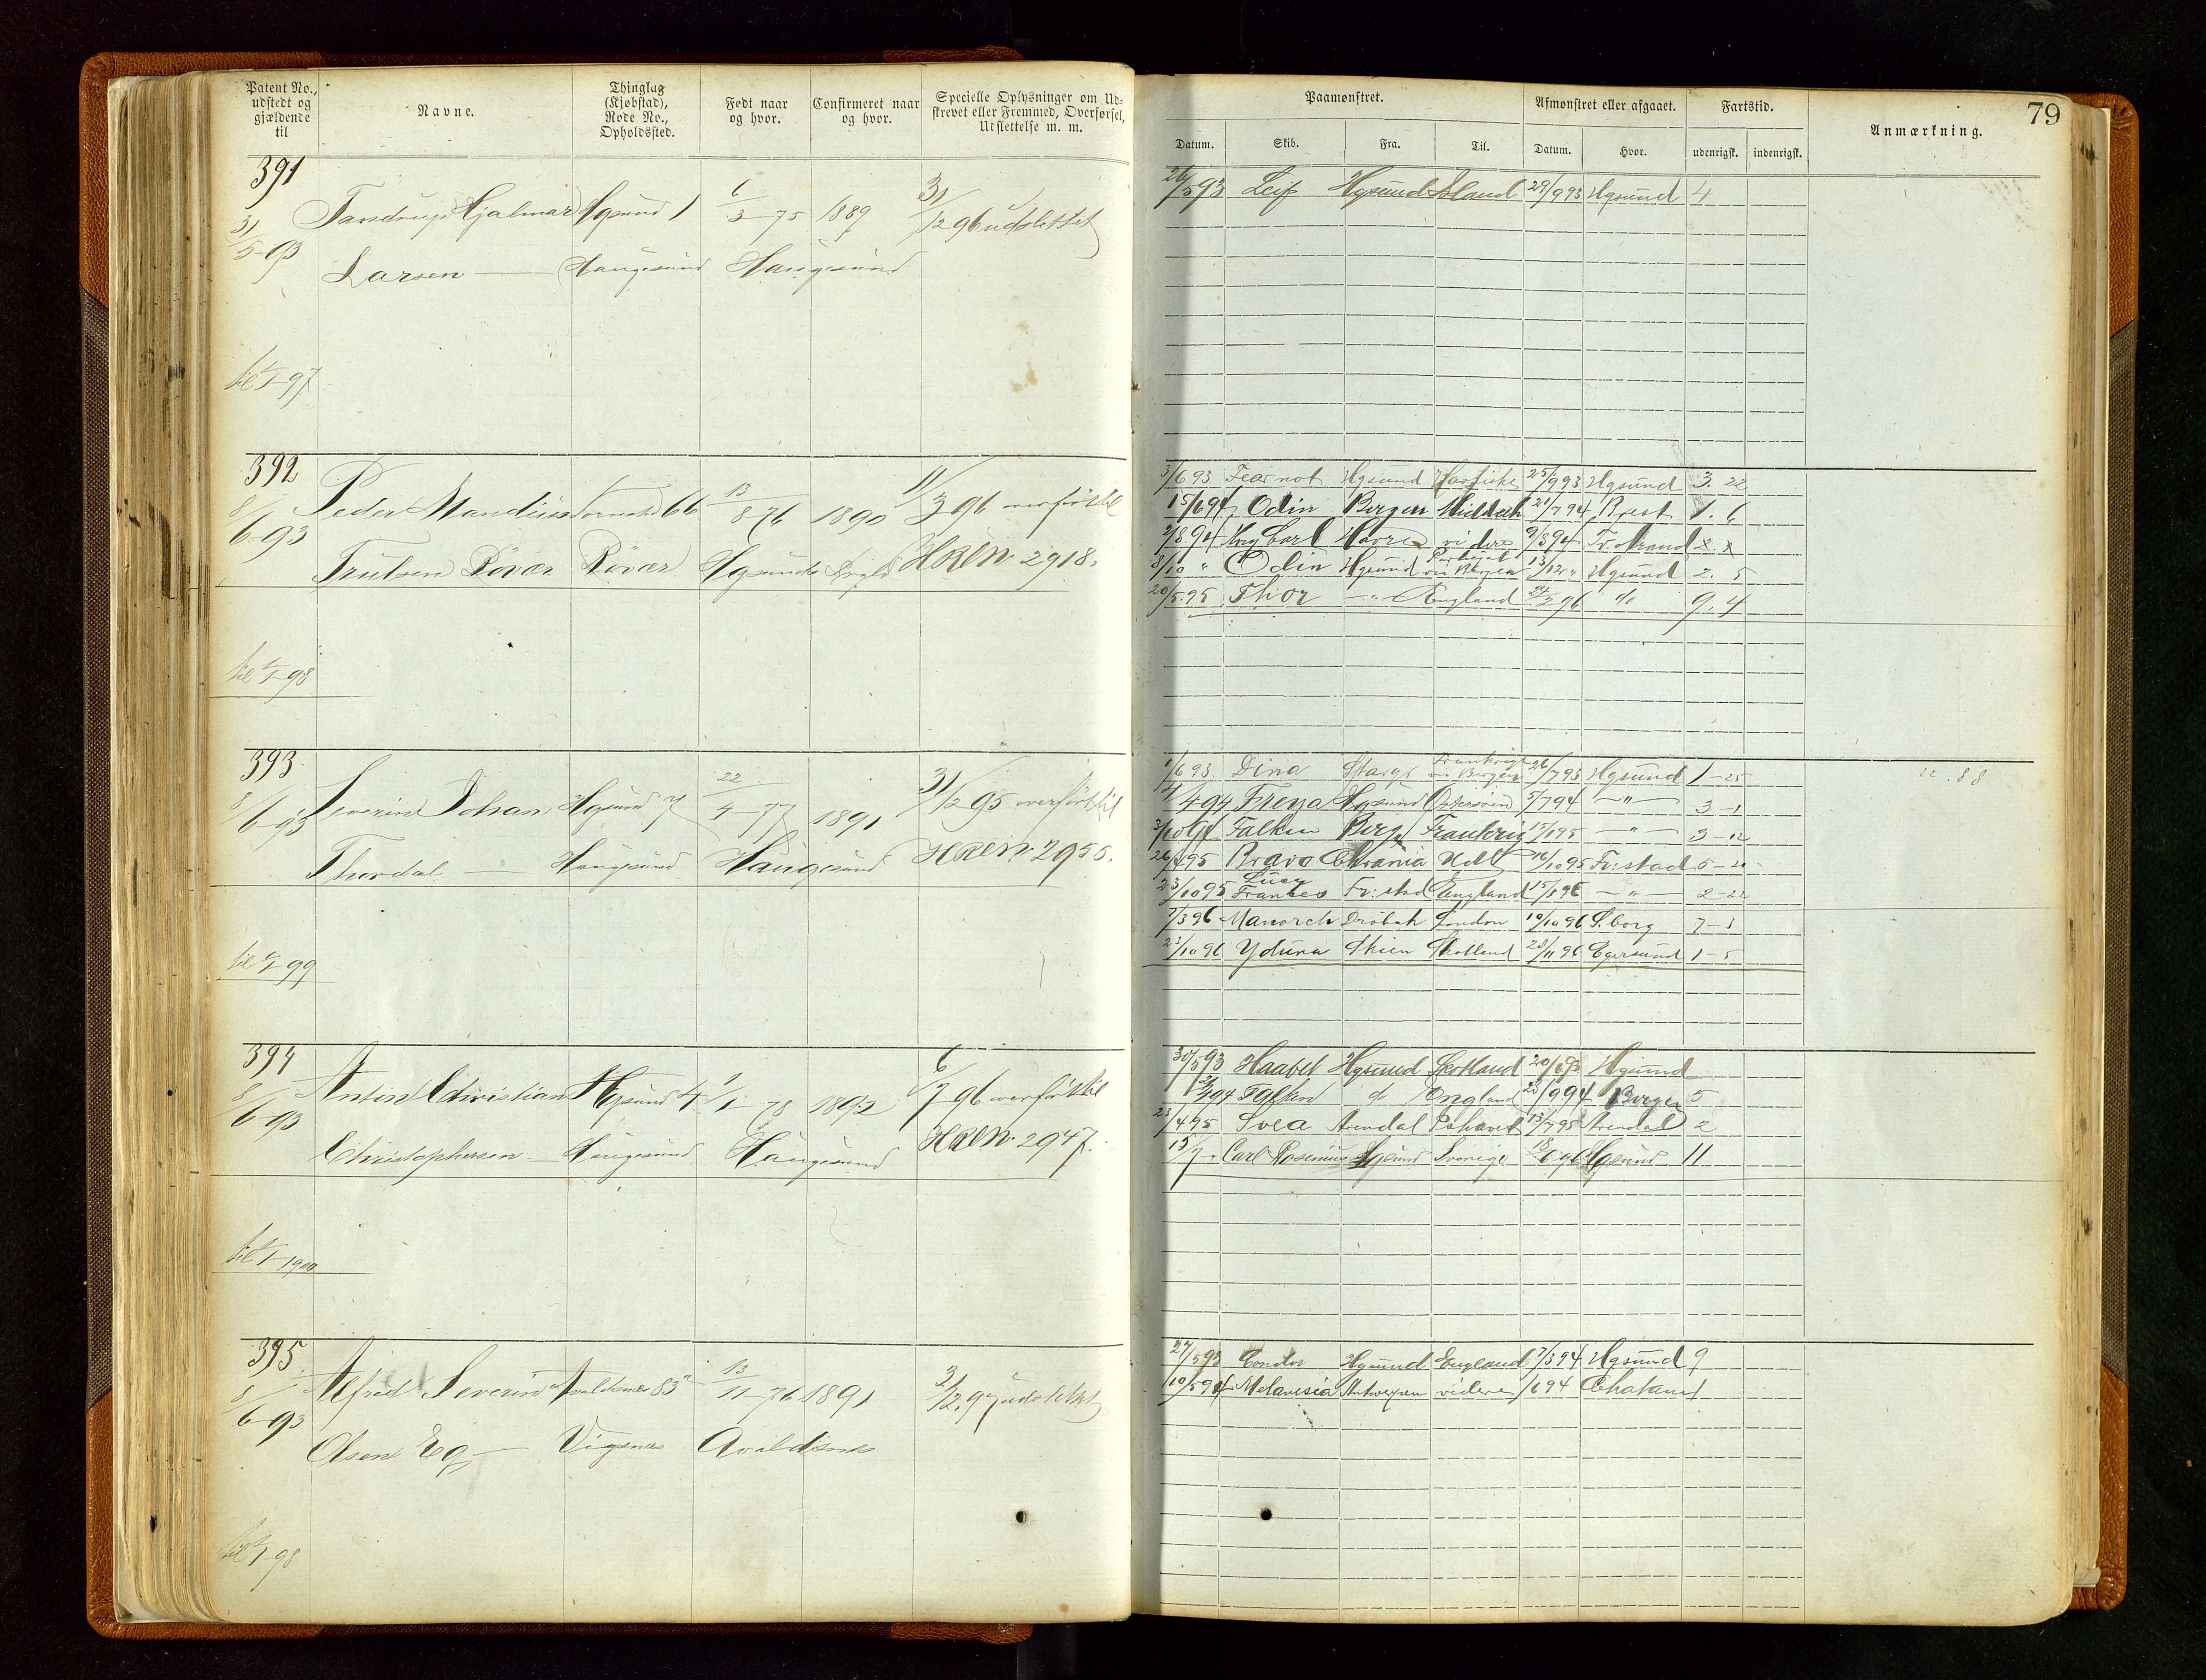 79
Patent No., udstedt og gjældende til
Navne.
Thinglag (Kjøbstad), Rode No., Opholdssted.
Født naar og hvor.
Confirmeret naar og hvor.
Specielle Oplysninger om Udskrevet eller Fremmed, Overførsel, Udslettelse m. m.
Paamønstret.
Afmønstret eller afgaaet.
Fartstid.
Anmærkning.
Datum. Skib. Fra. Til. Datum. Hvor. udenrigsk. indenrigsk.
391
31/5-93 Hjalmar Hgsund 1 6/3-75 1889 31/12 96 udslettet
Larsen Haugesund Haugesund
til 1/1-97
26/5 93 Leif Hgsund Island 29/9 93 Hgsund 4
392
8/6-93 Peder Mandius 66 13/8 76 1890 11/3 96 overført til
Trulsen Røvær Røvær Hgsund HREN 2918.
til 1/1-98
3/6 93 Fearnot Hgsund Havfiske 25/9 93 Hgsund 3. 22
15/6 94 Odin Bergen 21/7 94 Brest 1. 6
2/8 94 Carl Havre videre 9/8 94
8/10 " Odin Hgsund via Bergen 13/12 " Hgsund 2. 5
20/5 95 Thor -"- England 24/2 96 do 9. 4
393
8/6-93 Severin Johan Hgsund 7 22/4-77 1891 31/12 95 overført til
Thordal Haugesund Haugesund HREN 2955.
til 1/1-99
1/6 93 Dina Frankrigt via Bergen 26/7 93 Hgsund 1-25
4/4 94 Freya Hgsund 5/7 94 -"- 3-1
3/10 94 Falken Berg Frankrig 15/1 95 -"- 3-12
26/4 95 Bravo Chrania 16/10 95 Fr:stad 5-20
23/10 95 Lucy Frances Fr:stad England 15/1 96 -"- 2-22
7/3 96 Manorch Drøbak London 10/10 96 S.borg 7-3
23/10 96 Yduna Skien Skotland 28/11 96 Egersund 1-5
22.88
394
8/6-93 Anton Christian Hgsund 4 1/1-78 1892 6/7-96 overført til
Christophersen Haugesund Haugesund HREN 2947.
til 1/1-1900
30/5 93 Haabet Hgsund Skotland 20/6 93 Hgsund
2/4 94 Falken do England 28/9 94 Bergen 5
23/4 95 Svea Arendal 13/7 95 Arendal 2
15/7 - Carl Rosenius Hgsund Sverige 18/6 96 Hgsund 11
395
8/6-93 Alfred Severin Avaldsnes 83 13/11-76 1891 31/12. 97 udslettet
Olsen Eg Vigsnes Avaldsnes
til 1/1-98
27/5 93 Condor Hgsund England 7/3 94 Hgsund 9
10/5 94 Melanesia Antwerpen videre /6 94 Chatam